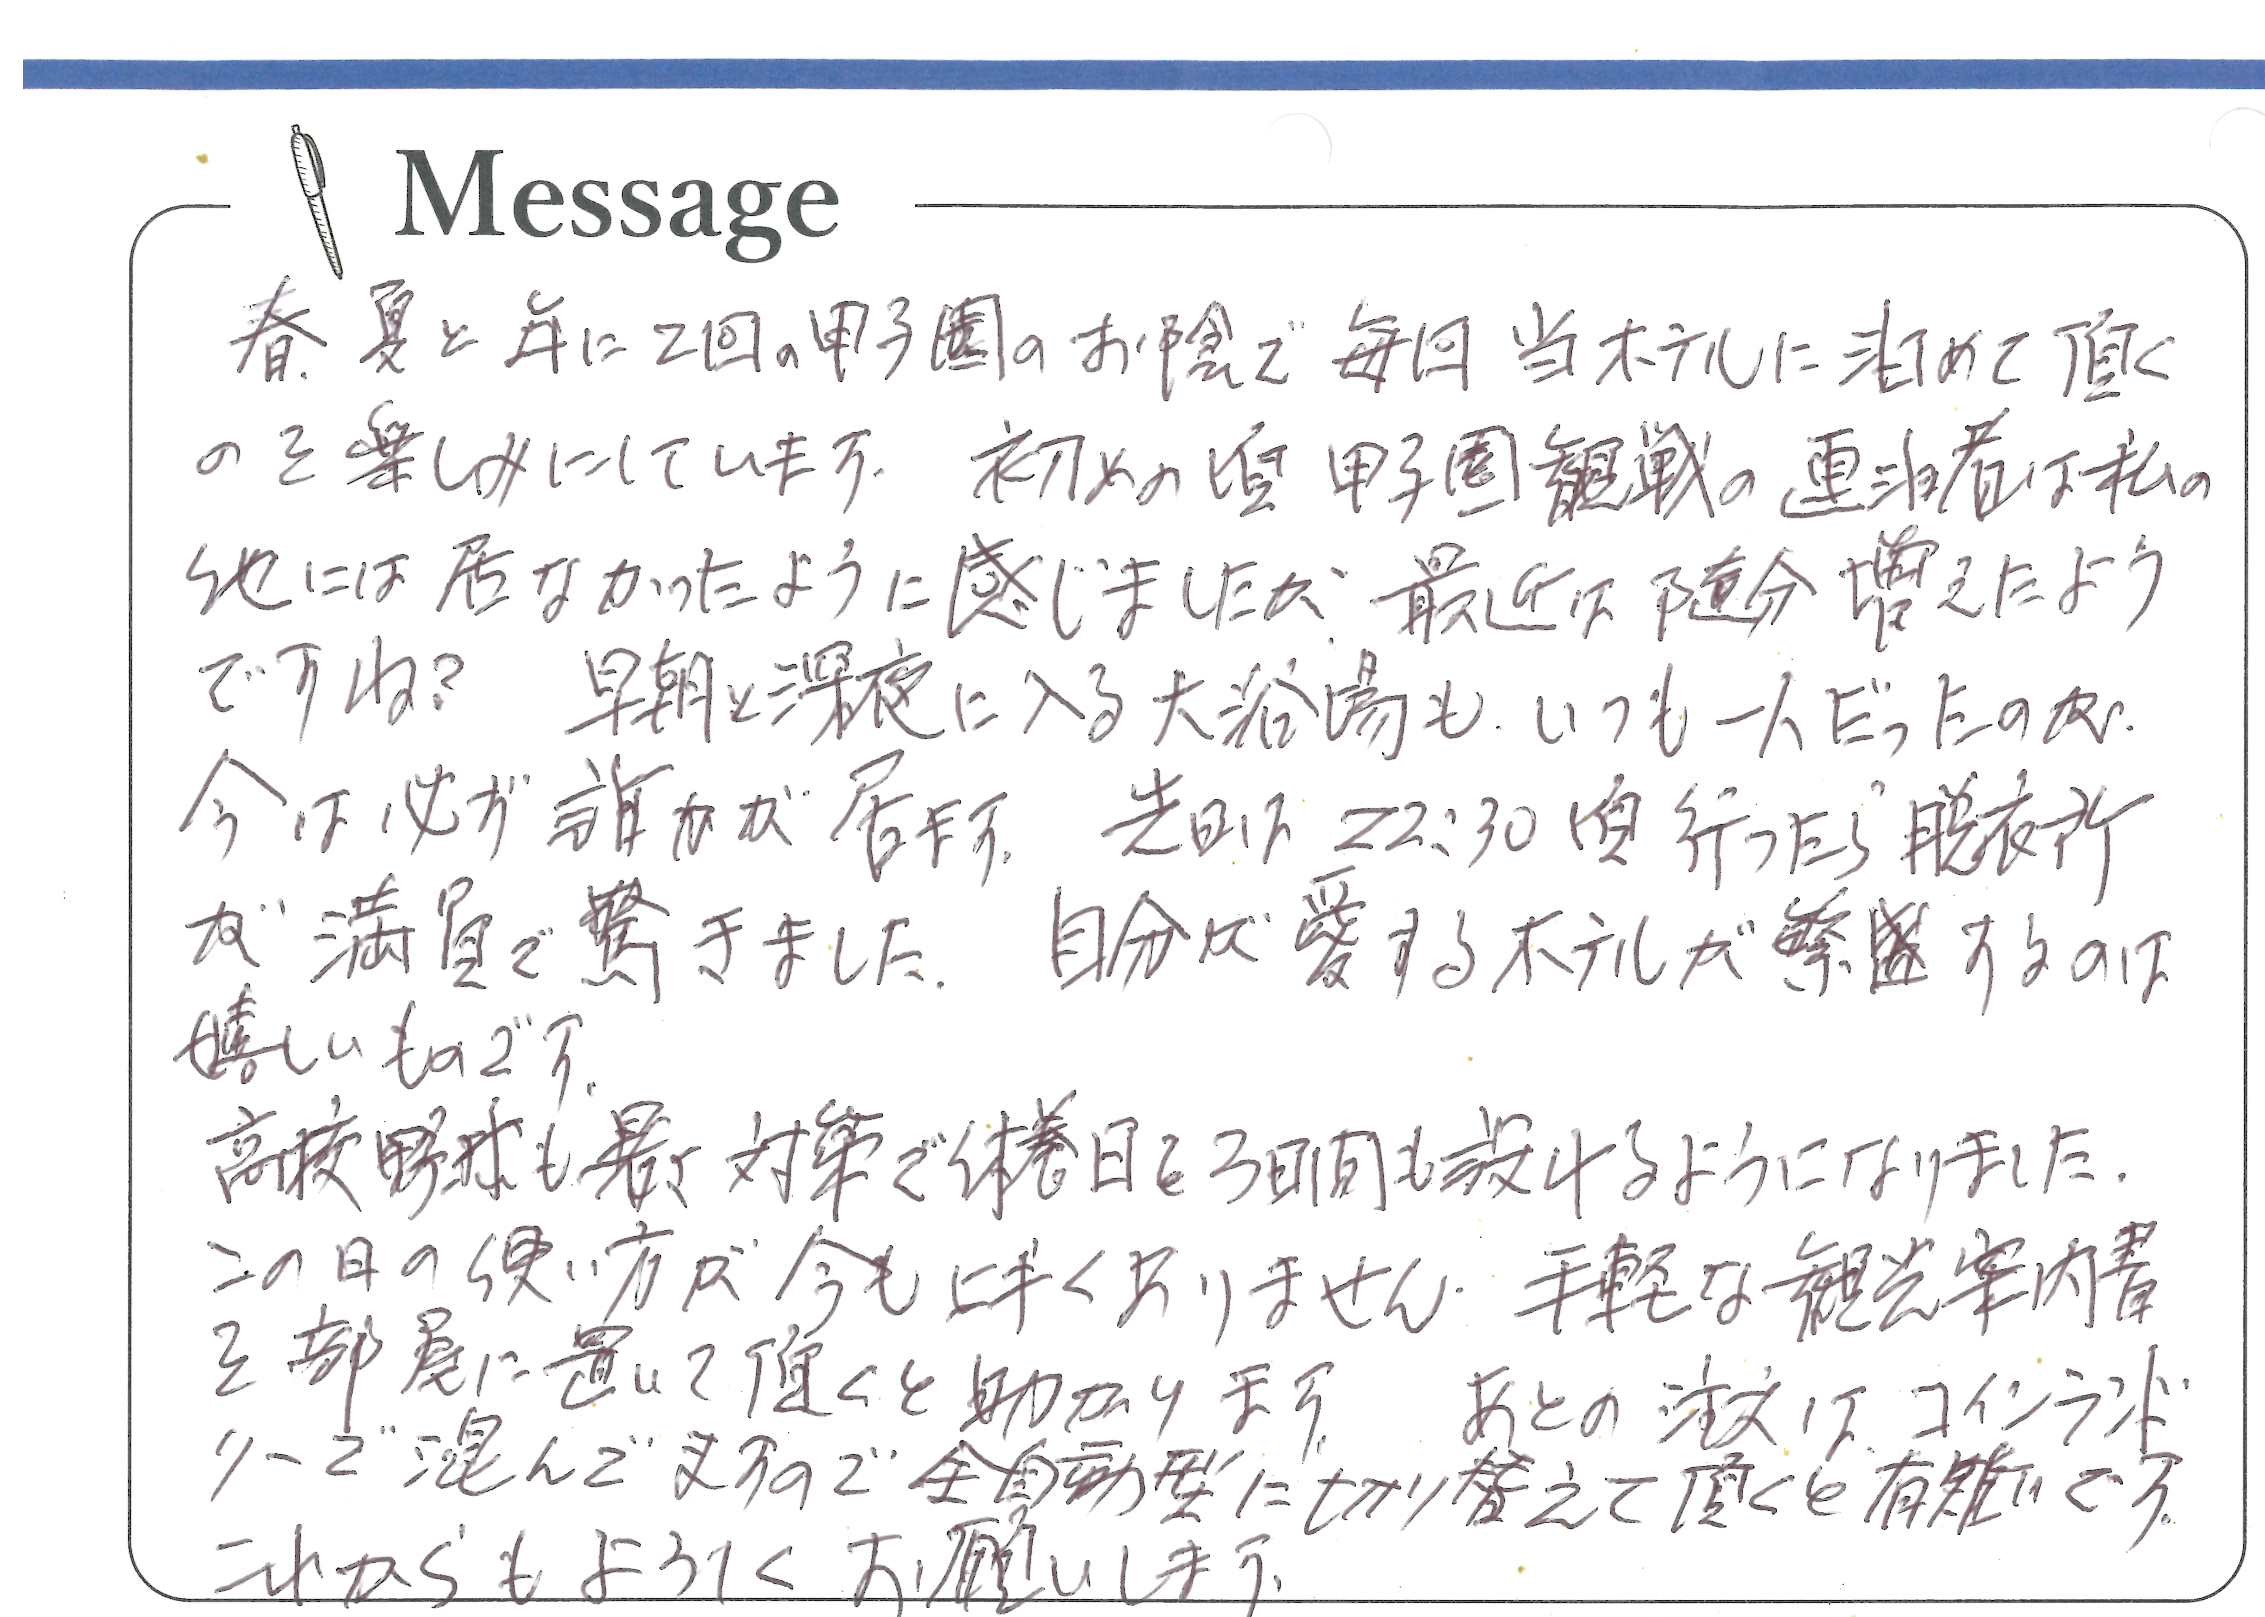 Message
春、夏と年に2回の甲子園のお陰で毎回当ホテルに泊めて頂く
のを楽しみにしています。初めの頃甲子園観戦の連泊者は私の
他には居なかったように感じましたが、最近は随分増えたよう
ですね？ 早朝と深夜に入る大浴場も、いつも一人だったのが、
今は必ず誰かが居ます。先日は22:30頃行ったら脱衣所
が満員で驚きました。自分が愛するホテルが繁盛するのは
嬉しいものです。
高校野球も暑さ対策で休養日を3日間も設けるようになりました。
この日の使い方が今もよくありません。手軽な観光案内書
を部屋に置いて頂くと助かります。あとの注文は、コインランド
リーで混んでますので全自動型に切り替えて頂くと有難いです。
これからもよろしくお願いします。